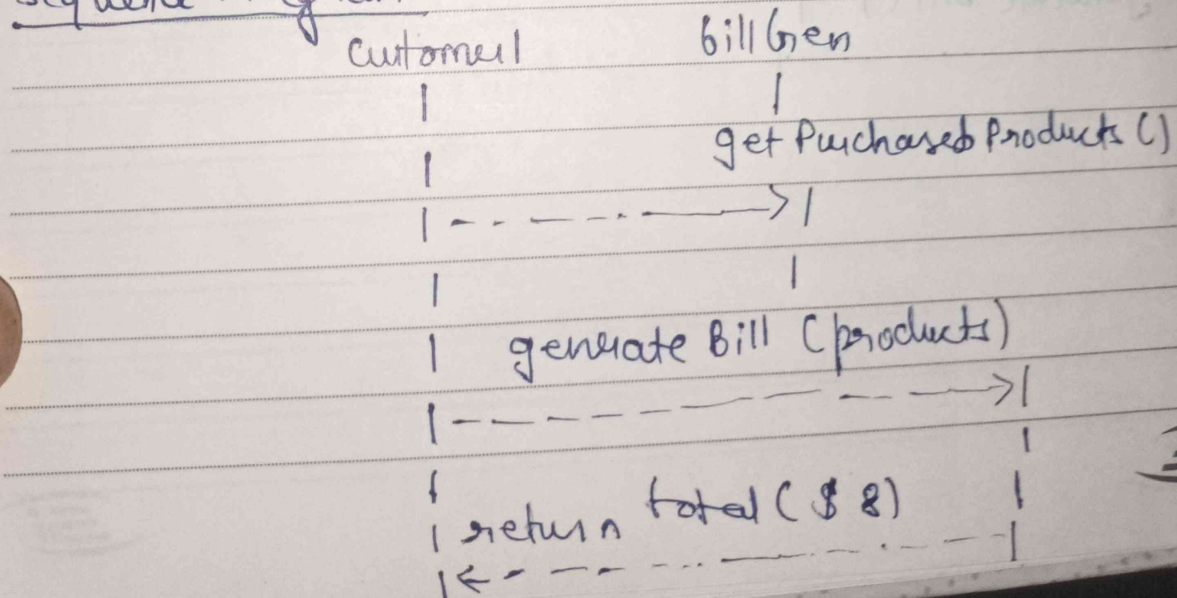 Customer1
Bill Gen
get Purchased Products ()
generate Bill (products)
return total ($ 8)